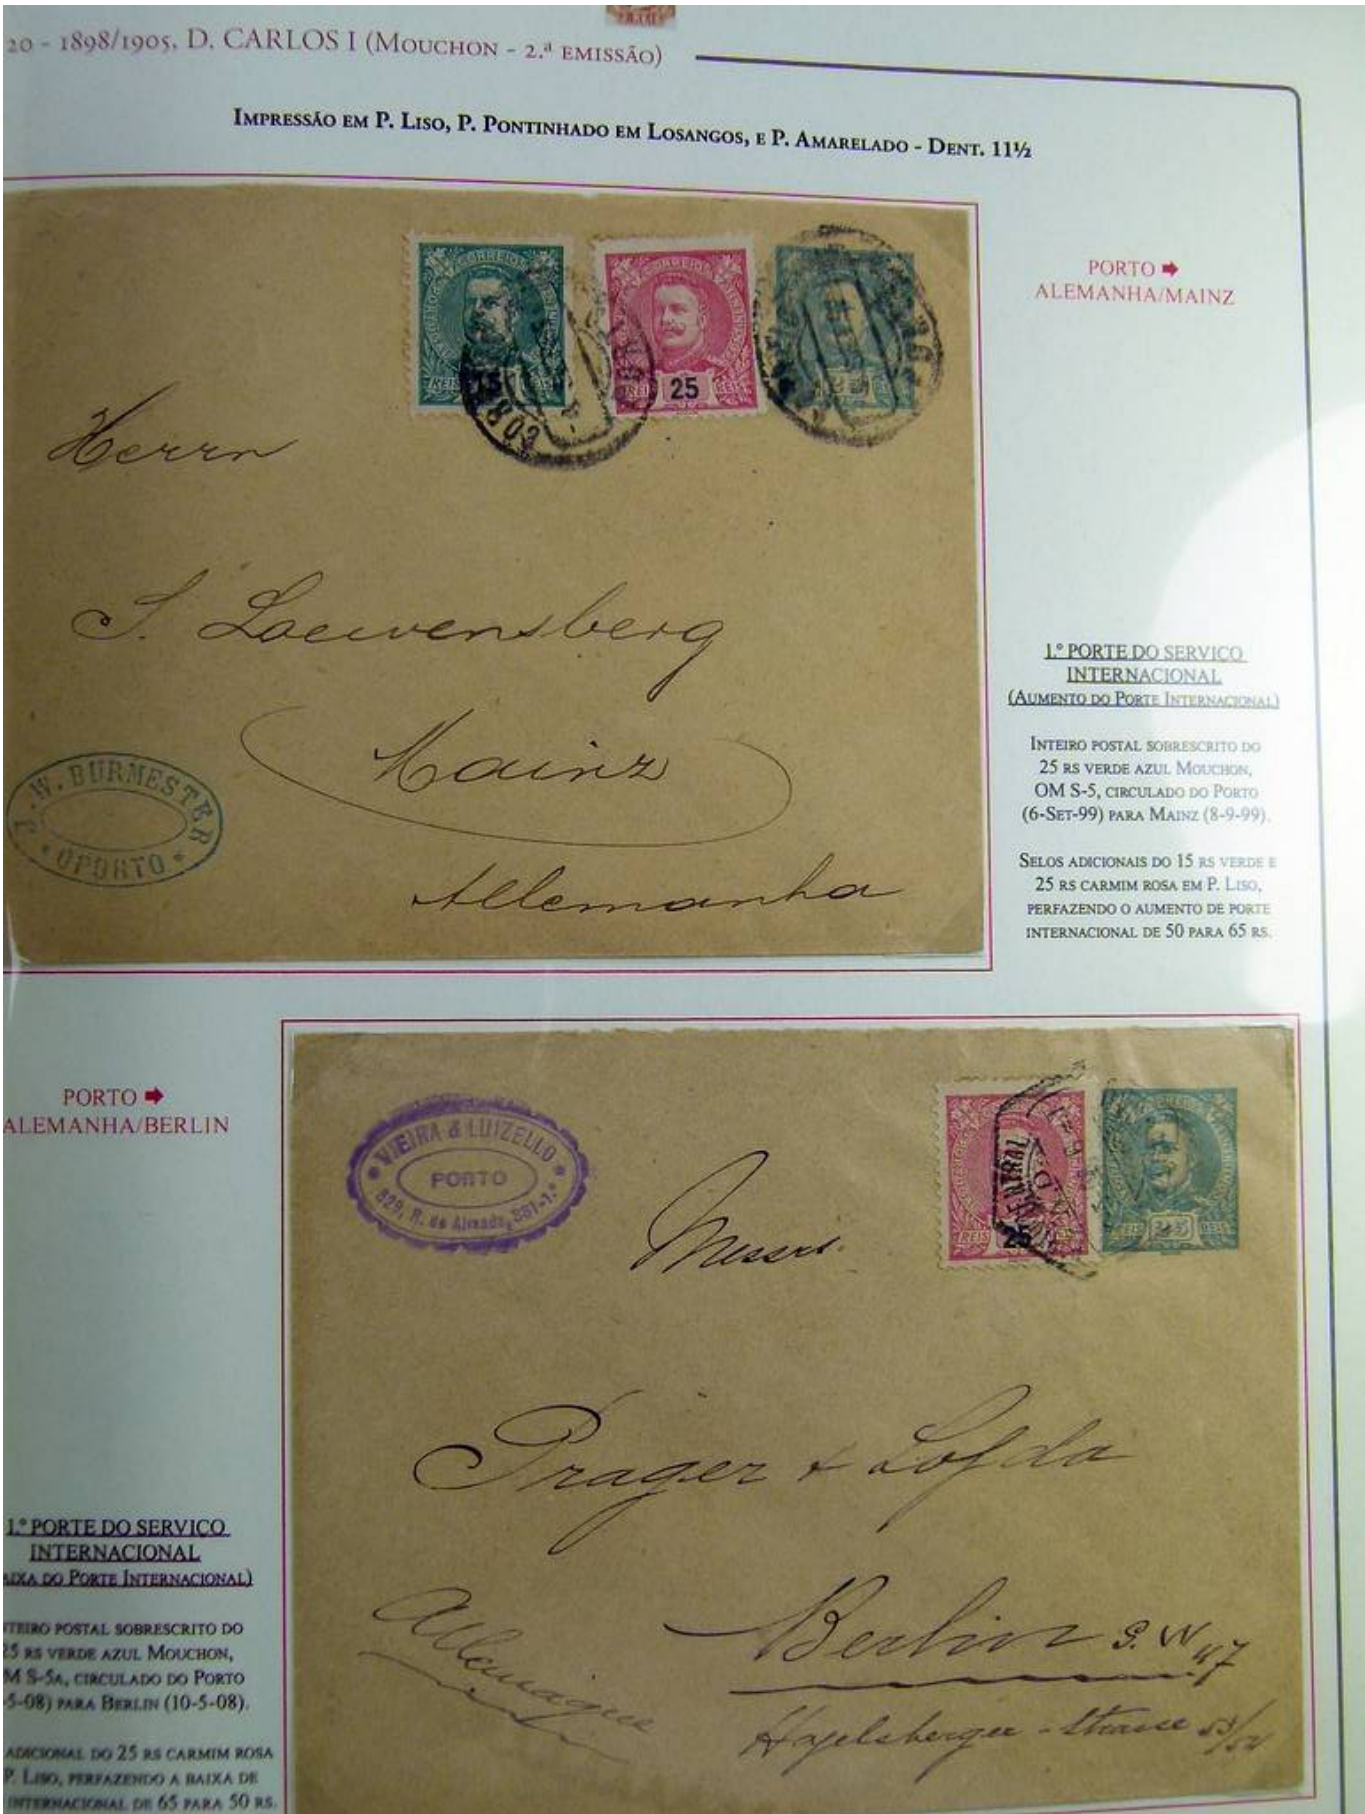 20 - 1898/1905, D. CARLOS I (MOUCHON - 2.ª EMISSÃO)
IMPRESSÃO EM P. LISO, P. PONTINHADO EM LOSANGOS, E P. AMARELADO - DENT. 11½
CORREIOS
REIS 15 REIS
CORREIOS
REIS 25 REIS
PORTO ➡
ALEMANHA/MAINZ
Herrn
S. Loewensberg
Mainz
Allemanha
J. W. BURMESTER
* OPORTO *
1.º PORTE DO SERVIÇO
INTERNACIONAL
(AUMENTO DO PORTE INTERNACIONAL)
INTEIRO POSTAL SOBRESCRITO DO
25 RS VERDE AZUL MOUCHON,
OM S-5, CIRCULADO DO PORTO
(6-SET-99) PARA MAINZ (8-9-99).
SELOS ADICIONAIS DO 15 RS VERDE E
25 RS CARMIM ROSA EM P. LISO,
PERFAZENDO O AUMENTO DE PORTE
INTERNACIONAL DE 50 PARA 65 RS.
PORTO ➡
ALEMANHA/BERLIN
VIEIRA & LUIZELLO
PORTO
R. do Almada
CENTRAL
REIS 25
REIS REIS
Messrs.
Prager &
Berlin S. W. 47
Allemagne
Hagelsberger - Strasse 53/54
1.º PORTE DO SERVIÇO
INTERNACIONAL
AIXA DO PORTE INTERNACIONAL)
TEIRO POSTAL SOBRESCRITO DO
25 RS VERDE AZUL MOUCHON,
OM S-5A, CIRCULADO DO PORTO
-5-08) PARA BERLIN (10-5-08).
ADICIONAL DO 25 RS CARMIM ROSA
P. LISO, PERFAZENDO A BAIXA DE
INTERNACIONAL DE 65 PARA 50 RS.